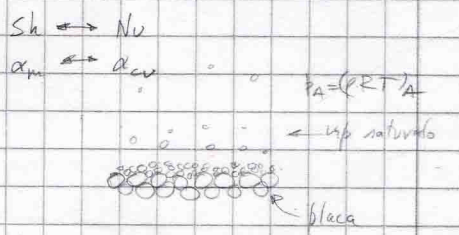 Sh ↔ Nu
αm ↔ αcv
pA=(ρRT)A
naturalo
placa